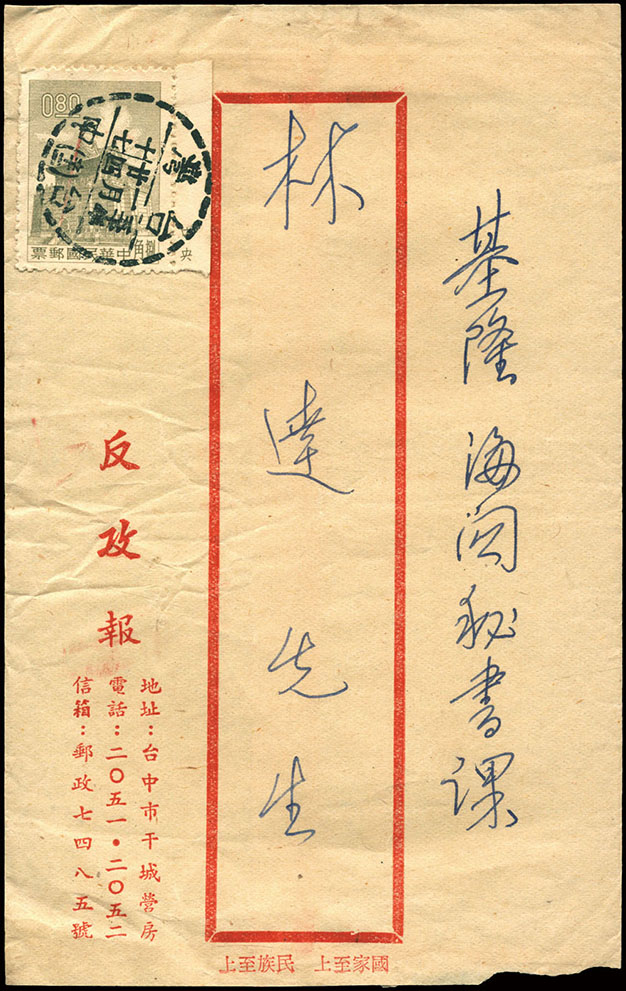 基隆 海關秘書課
林達先生
國家至上 民族至上
0.80
捌角
中華民國郵票
央
反攻報
地址:台中市干城營房
電話:二〇五一・二〇五二
信箱:郵政七四八五號